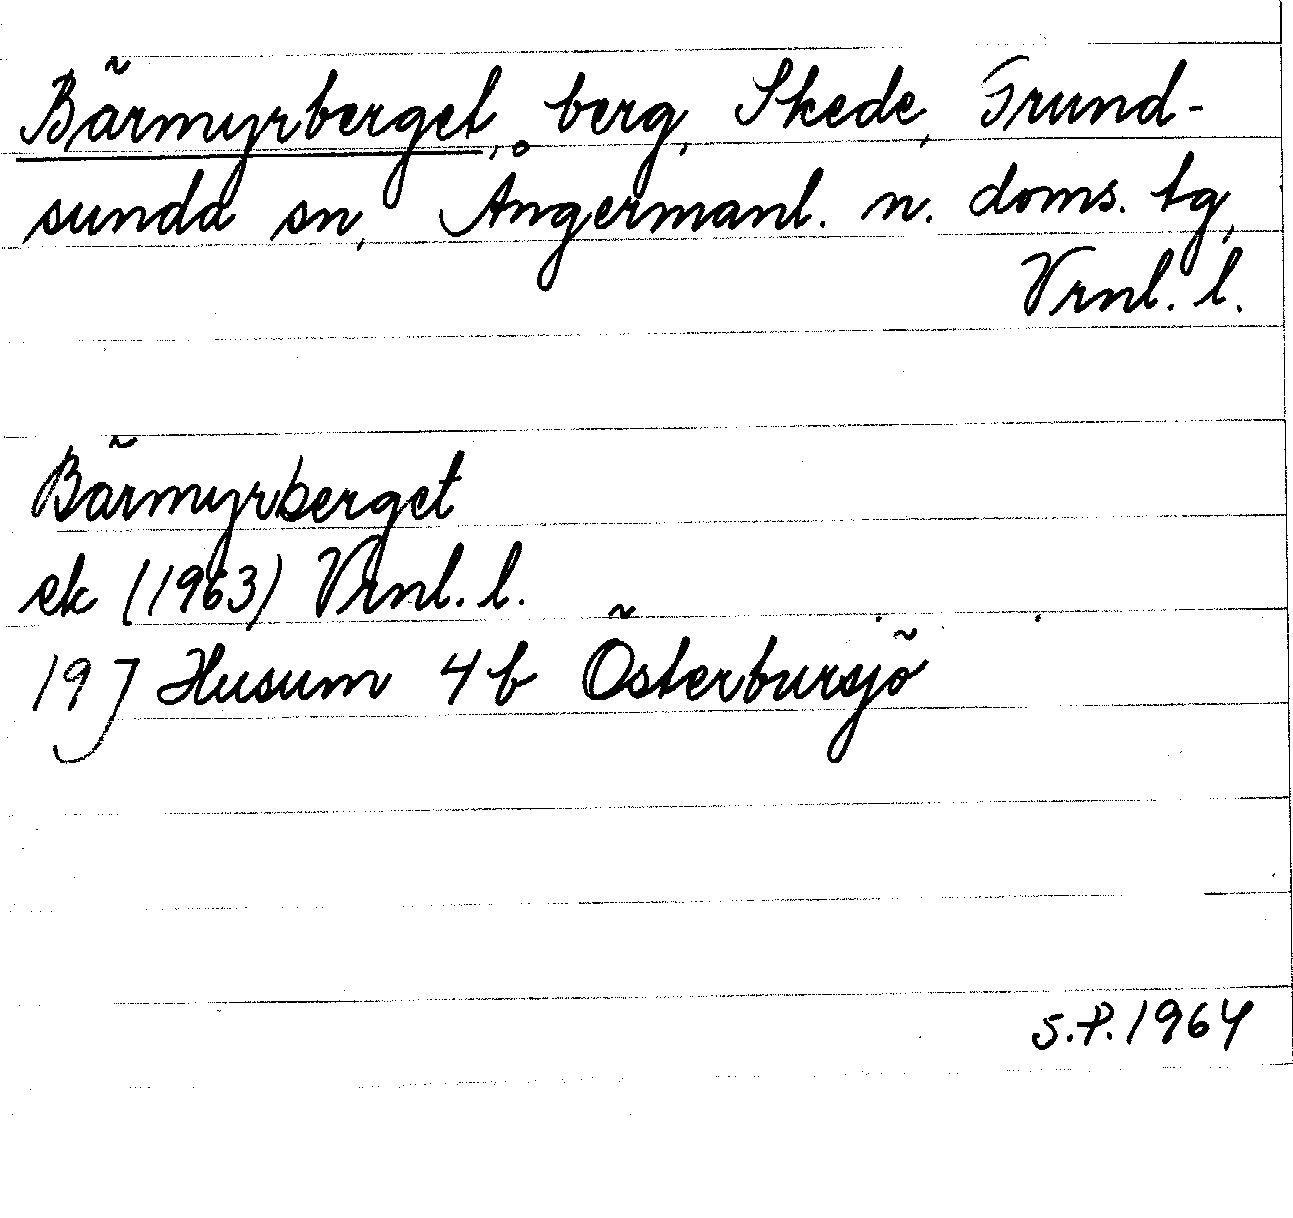 Bärmyrberget, berg, Skede, Grund-
sunda sn, Ångermanl. n. doms. tg,
Vrnl. l.
Bärmyrberget
ek (1963) Vrnl. l.
19 J Husum 4b Österbursjö
S.P. 1964